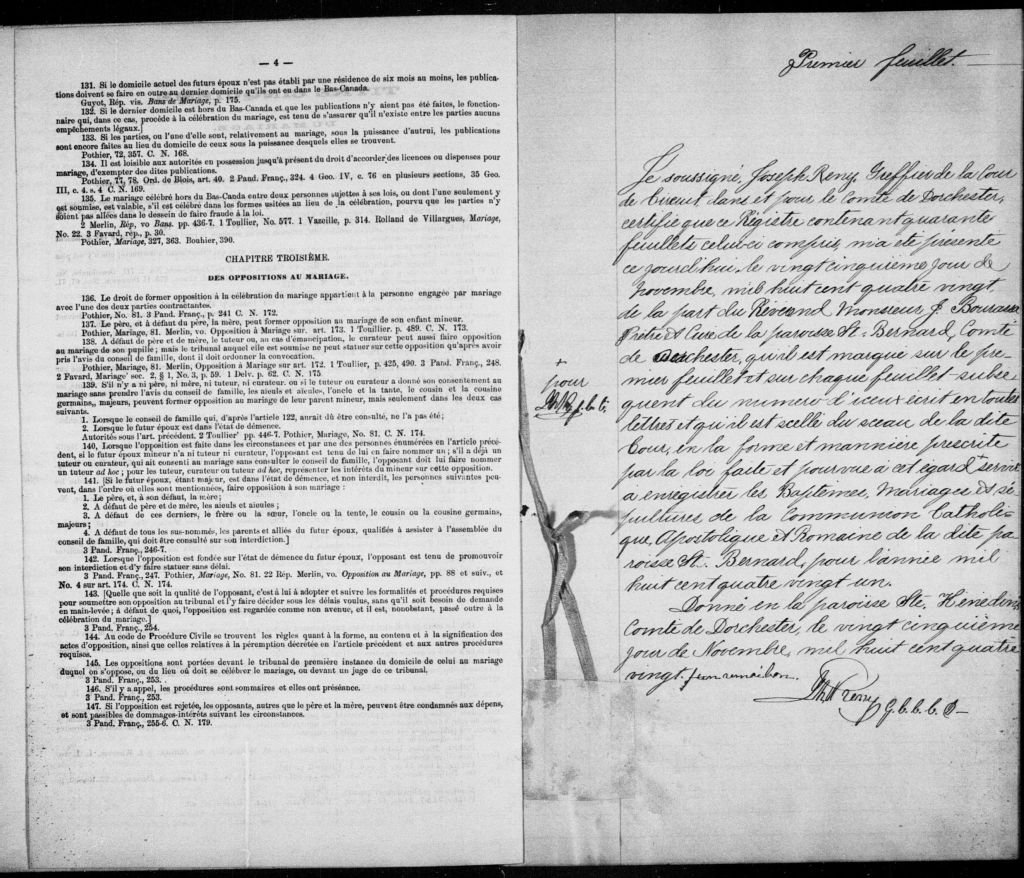 — 4 —
131. Si le domicile actuel des futurs époux n'est pas établi par une résidence de six mois au moins, les publica-
tions doivent se faire en outre au dernier domicile qu'ils ont eu dans le Bas-Canada.
Guyot, Rép. vis. Bans de Mariage, p. 175.
132. Si le dernier domicile est hors du Bas-Canada et que les publications n'y aient pas été faites, le fonction-
naire qui, dans ce cas, procède à la célébration du mariage, est tenu de s'assurer qu'il n'existe entre les parties aucuns
empêchements légaux.]
133. Si les parties, ou l'une d'elle sont, relativement au mariage, sous la puissance d'autrui, les publications
sont encore faites au lieu du domicile de ceux sous la puissance desquels elles se trouvent.
Pothier, 72, 357. C. N. 168.
134. Il est loisible aux autorités en possession jusqu'à présent du droit d'accorder des licences ou dispenses pour
mariage, d'exempter des dites publications.
Pothier, 77, 78. Ord. de Blois, art. 40. 2 Pand. Franç., 324. 4 Geo. IV, c. 76 en plusieurs sections, 35 Geo.
III, c. 4. s. 4 C. N. 169.
135. Le mariage célébré hors du Bas-Canda entre deux personnes sujettes à ses lois, ou dont l'une seulement y
est soumise, est valable, s'il est célébré dans les formes usitées au lieu de la célébration, pourvu que les parties n'y
soient pas allées dans le dessein de faire fraude à la loi.
2 Merlin, Rép, vo Bans. pp. 436-7. 1 Toullier, No. 577. 1 Vazeille, p. 314. Rolland de Villargues, Mariage,
No. 22. 3 Favard, rép., p. 30.
Pothier, Mariage, 327, 363. Bouhier, 390.
CHAPITRE TROISIÈME.
DES OPPOSITIONS AU MARIAGE.
136. Le droit de former opposition à la célébration du mariage appartient à la personne engagée par mariage
avec l'une des deux parties contractantes.
Pothier, No. 81. 3 Pand. Franç., p. 241 C. N. 172.
137. Le père, et à défaut du père, la mère, peut former opposition au mariage de son enfant mineur.
Pothier, Mariage, 81. Merlin, vo. Opposition à Mariage sur. art. 173. 1 Touillier. p. 489. C. N. 173.
138. A défaut de père et de mère, le tuteur ou, an cas d'émancipation, le curateur peut aussi faire opposition
au mariage de son pupille; mais le tribunal auquel elle est soumise ne peut statuer sur cette opposition qu'après avoir
pris l'avis du conseil de famille, dont il doit ordonner la convocation.
Pothier, Mariage, 81. Merlin, Opposition à Mariage sur art. 172. 1 Toullier, p. 425, 490. 3 Pand. Franç., 248.
2 Favard, Mariage' sec. 2, § 1, No. 3, p. 59. 1 Delv. p. 62. C. N. 175
139. S'il n'y a ni père, ni mère, ni tuteur, ni curateur. ou si le tuteur ou curateur a donné son consentement au
mariage sans prendre l'avis du conseil de famille, les aïeuls et aïeules, l'oncle et la tante, le cousin et la cousine
germains,, majeurs, peuvent former opposition au mariage de leur parent mineur, mais seulement dans les deux cas
suivants.
1. Lorsque le conseil de famille qui, d'après l'article 122, aurait dû être consulté, ne l'a pas été;
2. Lorsque le futur époux est dans l'état de démence.
Autorités sous l'art. précédent. 2 Toullier' pp. 446-7. Pothier, Mariage, No. 81. C. N. 174.
140. Lorsque l'opposition est faite dans les circonstances et par une des personnes énumérées en l'article précé-
dent, si le futur époux mineur n'a ni tuteur ni curateur, l'opposant est tenu de lui en faire nommer un; s'il a déjà un
tuteur ou curateur, qui ait consenti au mariage sans consulter le conseil de famille, l'opposant doit lui faire nommer
un tuteur ad hoc; pour les tuteur, curateur ou tuteur ad hoc, représenter les intérêts du mineur sur cette opposition.
141. [Si le futur époux, étant majeur, est dans l'état de démence, et non interdit, les personnes suivantes peu-
vent, dans l'ordre où elles sont mentionnées, faire opposition à son mariage:
1. Le père, et, à son défaut, la mère;
2. A défaut de père et de mère, les aïeuls et aïeules;
3. A défaut de ces derniers, le frère ou la sœur, l'oncle ou la tante, le cousin ou la cousine germains,
majeurs;
4. A défaut de tous les sus-nommés, les parents et alliés du futur époux, qualifiés à assister à l'assemblée du
conseil de famille, qui doit être consulté sur son interdiction.]
3 Pand. Franç., 246-7.
142. Lorsque l'opposition est fondée sur l'état de démence du futur époux, l'opposant est tenu de promouvoir
son interdiction et d'y faire statuer sans délai.
3 Pand. Franç., 247. Pothier, Mariage, No. 81. 22 Rép. Merlin, vo. Opposition au Mariage, pp. 88 et suiv., et
No. 4 sur art. 174. C. N. 174.
143. [Quelle que soit la qualité de l'opposant, c'est à lui à adopter et suivre les formalités et procédures requises
pour soumettre son opposition au tribunal et l'y faire décider sous les délais voulus, sans qu'il soit besoin de demande
en main-levée; à défaut de quoi, l'opposition est regardée comme non avenue, et il est, nonobstant, passé outre à la
célébration du mariage.]
3 Pand. Franç., 254.
144. Au code de Procédure Civile se trouvent les règles quant à la forme, au contenu et à la signification des
actes d'opposition, ainsi que celles relatives à la péremption décrétée en l'article précédent et aux autres procédures
requises.
145. Les oppositions sont portées devant le tribunal de première instance du domicile de celui au mariage
duquel on s'oppose, ou du lieu où doit se célébrer le mariage, ou devant un juge de ce tribunal.
3 Pand. Franç., 253.
146. S'il y a appel, les procédures sont sommaires et elles ont préséance.
3 Pand. Franç., 253.
147. Si l'opposition est rejetée, les opposants, autres que le père et la mère, peuvent être condamnés aux dépens,
et sont passibles de dommages-intérêts suivant les circonstances.
3 Pand. Franç., 255-6. C. N. 179.
Premier feuillet.
Je soussigné, Joseph Remy, Greffier de la Cour
de Circuit dans et pour le Comté de Dorchester,
certifie que ce Régistre contenant quarante
feuillets celui-ci compris, m'a été présenté
ce jourd'hui, le vingt cinquième jour de
Novembre, mil huit cent quatre vingt
de la part du Révérend Monsieur J. Bourassa
Prêtre et Curé de la paroisse St. Bernard, Comté
de Dorchester, qu'il est marqué sur le pre-
mier feuillet et sur chaque feuillet subsé-
quent du numéro d'iceux écrit en toutes
lettres et qu'il est scellé du sceau de la dite
Cour, en la forme et mannière prescrite
par la loi faite et pourvue à cet égard + servir
a enregistrer les Baptêmes, Mariages et sé-
pultures de la Communion Catholi-
que, Apostolique et Romaine de la dite pa-
roisse St. Bernard, pour l'année mil
huit cent quatre vingt un.
Donné en la paroisse Ste. Hénédine
Comté de Dorchester, le vingt cinquième
jour de Novembre, mil huit cent quatre
vingt.
+
pour